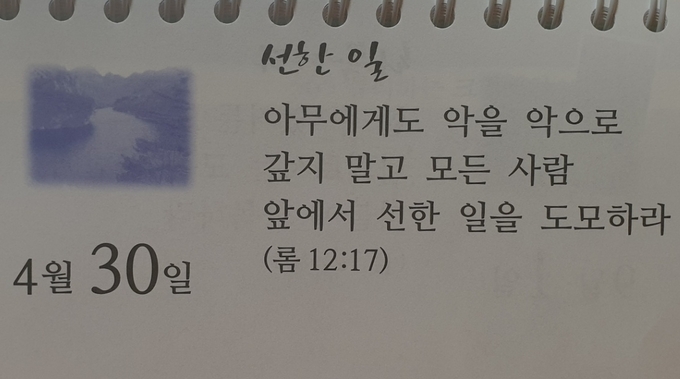 선한 일
아무에게도 악을 악으로
갚지 말고 모든 사람
앞에서 선한 일을 도모하라
(롬 12:17)
4월 30일